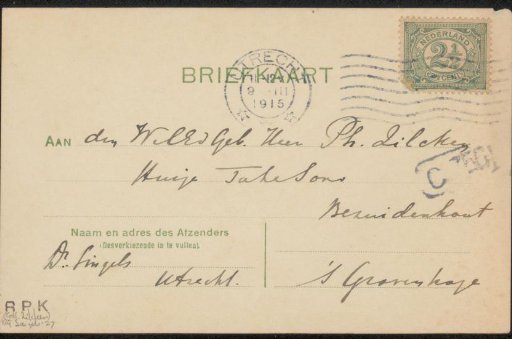 BRIEFKAART
UTRECHT
9 III
1915
NEDERLAND
2½
CENT
AAN den WelEdGeb. Heer Ph. Zilcken
Huize
Bezuidenhout
's Gravenhage
C
Naam en adres des Afzenders
(Desverkiezende in te vullen).
Dr. Singels
Utrecht.
R.P.K